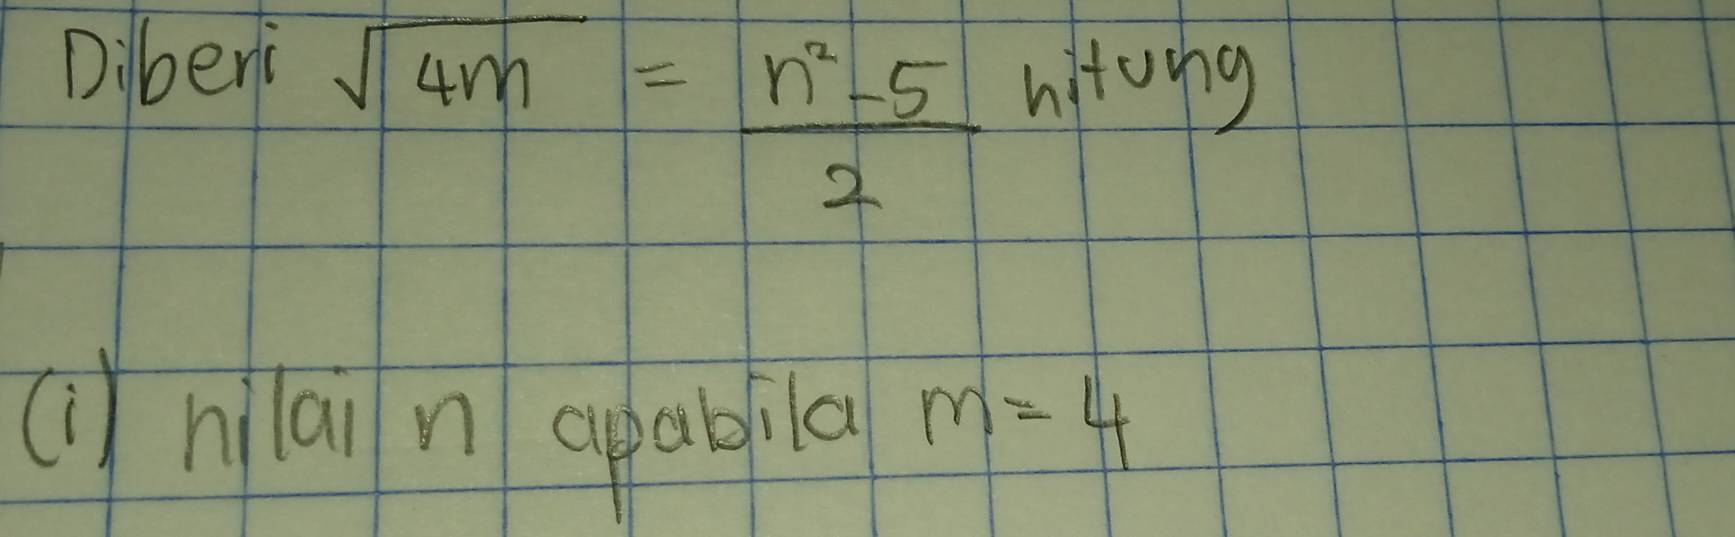 Diberi √4m = (n² - 5)/2 hitung
(i) nilai n apabila m = 4